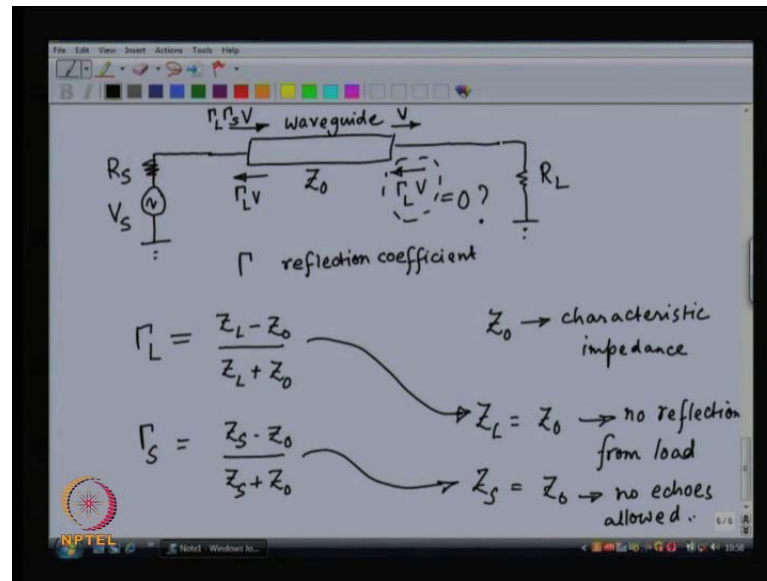 File Edit View Insert Actions Tools Help
B I
Γ_L Γ_S V waveguide V
R_S Γ_L V Z_0 Γ_L V = 0 ? R_L
V_S
Γ reflection coefficient
Γ_L = (Z_L - Z_0) / (Z_L + Z_0)
Z_0 → characteristic impedance
Z_L = Z_0 → no reflection from load
Γ_S = (Z_S - Z_0) / (Z_S + Z_0)
Z_S = Z_0 → no echoes allowed..
6/6
NPTEL
Note1 - Windows Jo...
10:56